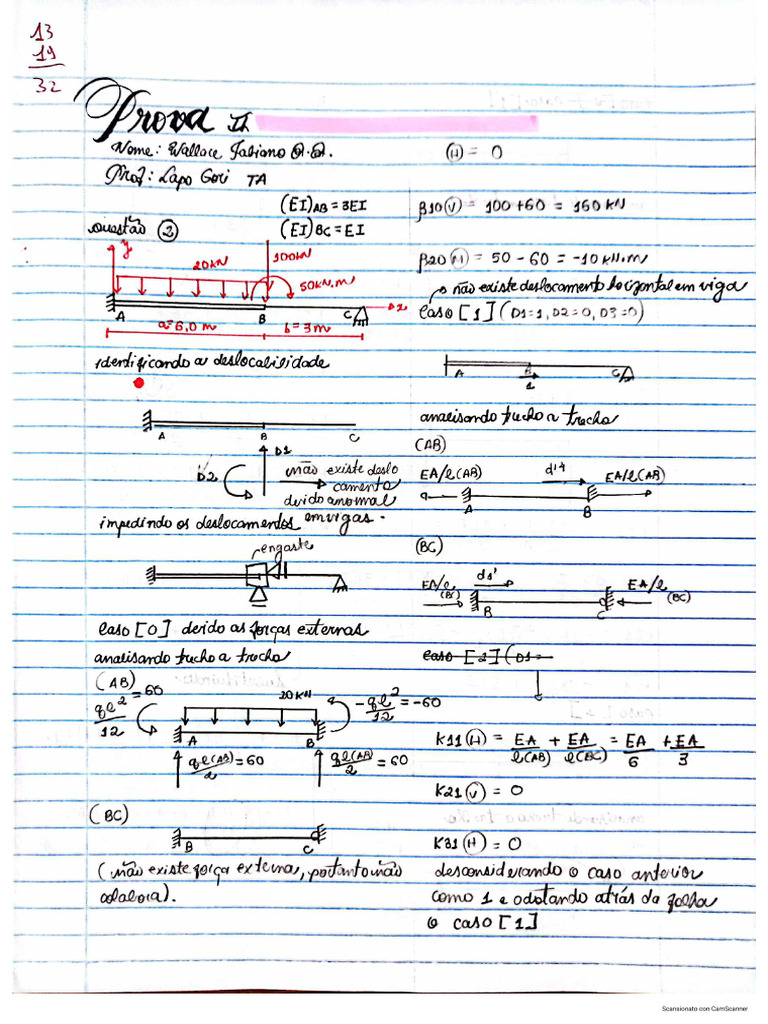 13
19
32
Prova II
Nome: Wallace Fabiano
Prof: Lapo Gori TA
(EI)AB = 3EI
questão 2
(EI)BC = EI
y
20kN
100kN
50kN.m
A
B
C
a=6,0 m
b=3m
identificando a deslocabilidade
A
B
C
D1
D2
não existe deslo
camento
devido a normal
em vigas.
impedindo os deslocamentos
engaste
Caso [0] devido as forças externas
analisando trecho a trecho
(AB)
ql²/12 = 60
20kN
-ql²/12 = -60
A
B
ql(AB)/2 = 60
ql(AB)/2 = 60
(BC)
B
C
(não existe força externa, portanto não
colabora).
(H) = 0
β10(V) = 100+60 = 160 kN
β20(M) = 50 - 60 = -10 kN.m
não existe deslocamento horizontal em viga
Caso [1] (D1=1, D2=0, D3=0)
A
B
C
1
analisando trecho a trecho
(AB)
EA/l(AB)
EA/l(AB)
A
B
(BC)
EA/l
(BC)
EA/l
(BC)
B
C
caso [2] (D1=
K11(H) = EA/l(AB) + EA/l(BC) = EA/6 + EA/3
K21(V) = 0
K31(H) = 0
desconsiderando o caso anterior
como 1 e adotando atrás da folha
o caso [1]
Scansionato con CamScanner